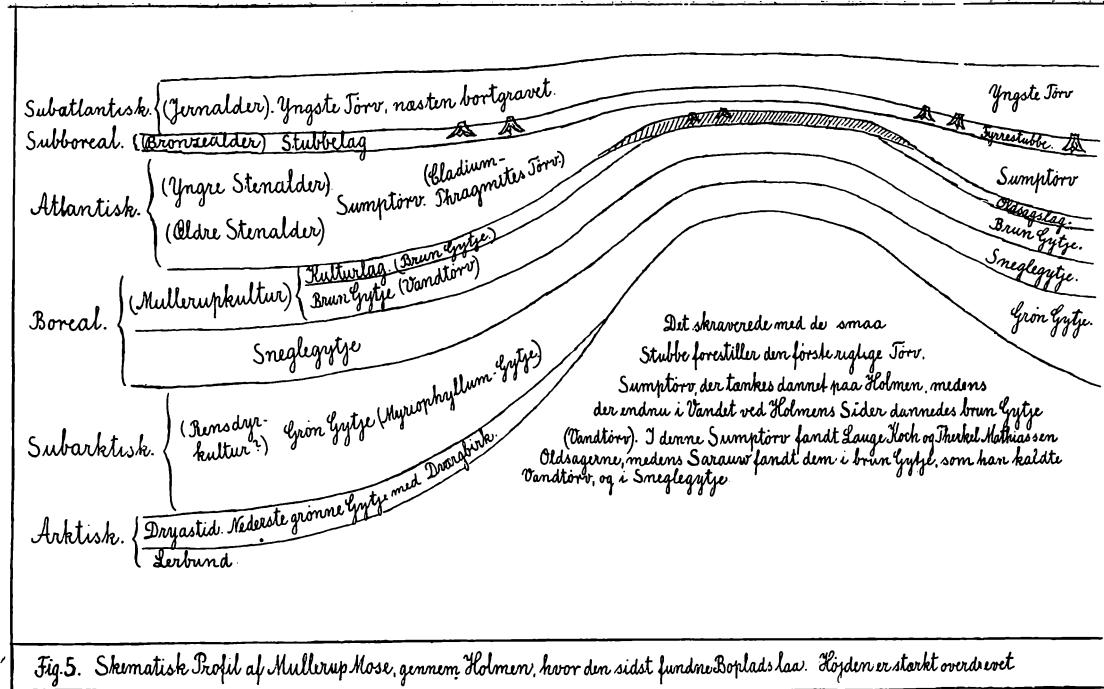 Subatlantisk. (Jernalder). Yngste Törv, næsten bortgravet.
Yngste Törv
Subboreal. (Bronzealder) Stubbelag
Fyrrestubbe.
Atlantisk.
(Yngre Stenalder)
(Ældre Stenalder)
Sumptörv.
(Cladium-
Phragmites Törv.)
Sumptörv
Oldsagslag.
Brun Gytje.
Sneglegytje.
Grön Gytje.
Boreal.
(Mullerupkultur)
Kulturlag. (Brun Gytje.)
Brun Gytje (Vandtörv)
Sneglegytje
Subarktisk.
(Rensdyr-
kultur?)
Grön Gytje (Myriophyllum-Gytje.)
Arktisk.
Dryastid. Nederste grönne Gytje med Dværgbirk.
Lerbund
Det skraverede med de smaa
Stubbe forestiller den förste rigtige Törv.
Sumptörv, der tænkes dannet paa Holmen, medens
der endnu i Vandet ved Holmens Sider dannedes brun Gytje
(Vandtörv). I denne Sumptörv fandt Lauge Koch og Therkel Mathiassen
Oldsagerne, medens Sarauw fandt dem i brun Gytje, som han kaldte
Vandtörv, og i Sneglegytje
Fig.5. Skematisk Profil af Mullerup Mose, gennem Holmen, hvor den sidst fundne Boplads laa. Höjden er stærkt overdrevet